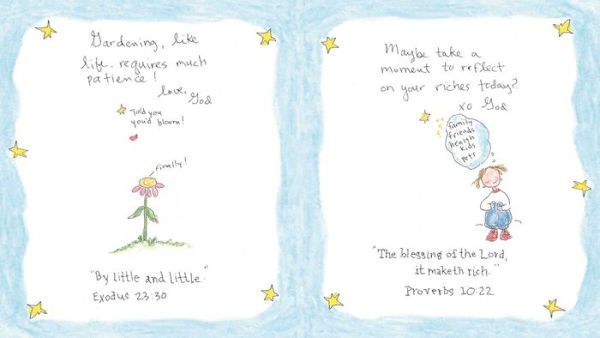 Gardening, like
life, requires much
patience!
love, God
Told you
you'd bloom!
finally!
"By little and little."
Exodus 23:30
Maybe take a
moment to reflect
on your riches today?
xo God
family
friends
health
kids
pets
"The blessing of the Lord,
it maketh rich."
Proverbs 10:22